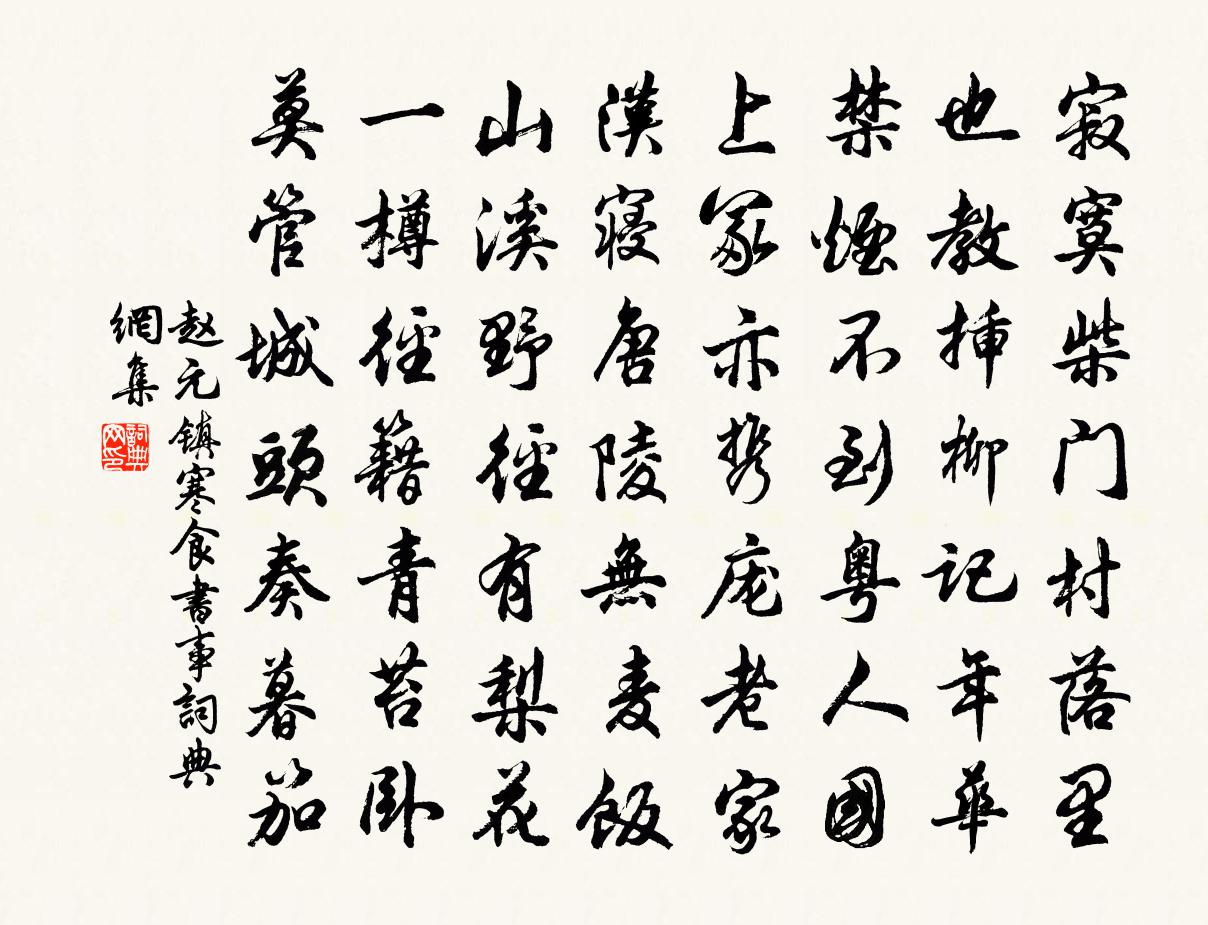 寂寞柴门村落里
也教插柳记年华
禁煙不到粤人國
上冢亦携庞老家
漢寝唐陵無麦飯
山溪野径有梨花
一樽径籍青苔卧
莫管城頭奏暮笳
赵元镇寒食書事詞典
網集
詞典
网印